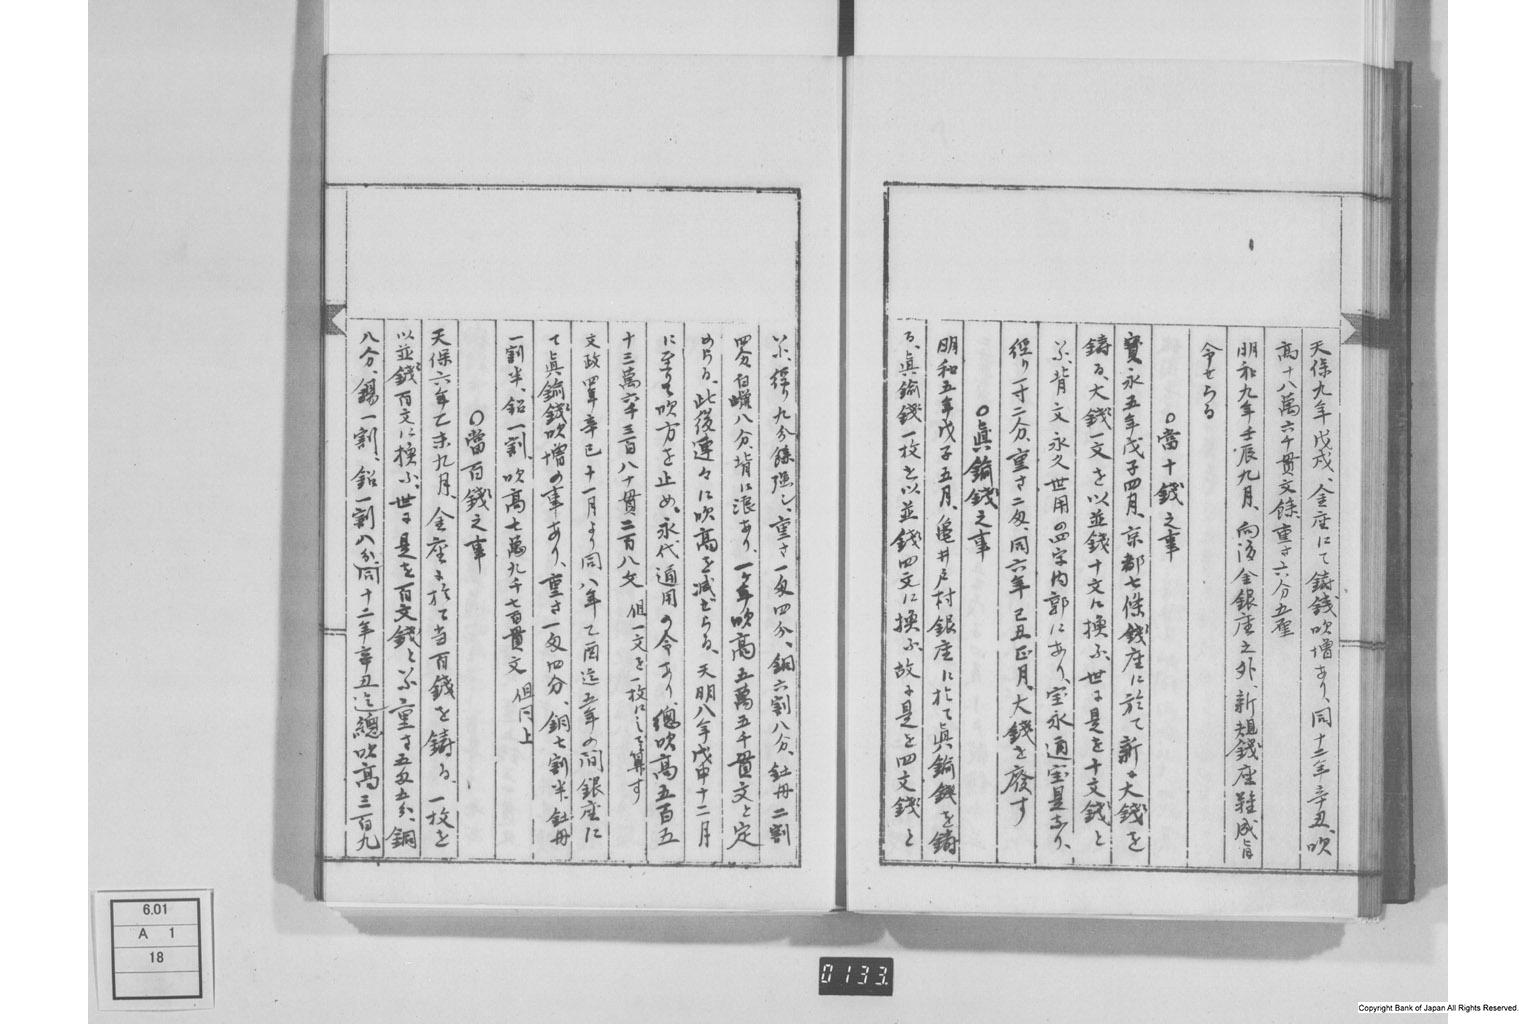 天保九年戊戌、金座にて鋳錢吹増あり、同十二年辛丑、吹
高十八萬六千貫文餘、重さ六分五厘
明和九年壬辰九月、向後金銀座之外、新規錢座難成旨
令せらる
○當十錢之事
寳永五年戊子四月、京都七條錢座に於て新に大錢を
鋳る、大錢一文を以並錢十文に換ふ、世に是を十文錢と
云、背文永久世用の四字內郭にあり、宝永通宝是なり、
徑り一寸二分、重さ二匁、同六年己丑正月、大錢を廢す
○眞鍮錢之事
明和五年戊子五月、亀井戸村銀座に於て眞鍮錢を鋳
る、眞鍮錢一枚を以並錢四文に換ふ、故に是を四文錢と
いふ、徑り九分餘強し、重さ一匁四分、銅六割八分、牡丹二割
四分、白蠟八分、背に浪あり、一ヶ年吹高五萬五千貫文と定
めらる、此後連々に吹高を減せらる、天明八年戊申十二月
に至りて吹方を止め、永代通用の令あり、總吹高五百五
十三萬六千三百八十貫二百八文 但一文を一枚にして算す
文政四年辛巳十一月より同八年乙酉迄五年の間銀座に
て眞鍮錢吹増の事あり、重さ一匁四分、銅七割半、牡丹
一割半、鉛一割、吹高七萬九千七百貫文 但同上
○當百錢之事
天保六年乙未九月、金座に於て当百錢を鋳る、一枚を
以並錢百文に換ふ、世に是を百文錢と云、重さ五匁五分、銅
八分、錫一割、鉛一割八分、同十二年辛丑迄總吹高三百九
6.01
A 1
18
0133.
Copyright Bank of Japan All Rights Reserved.